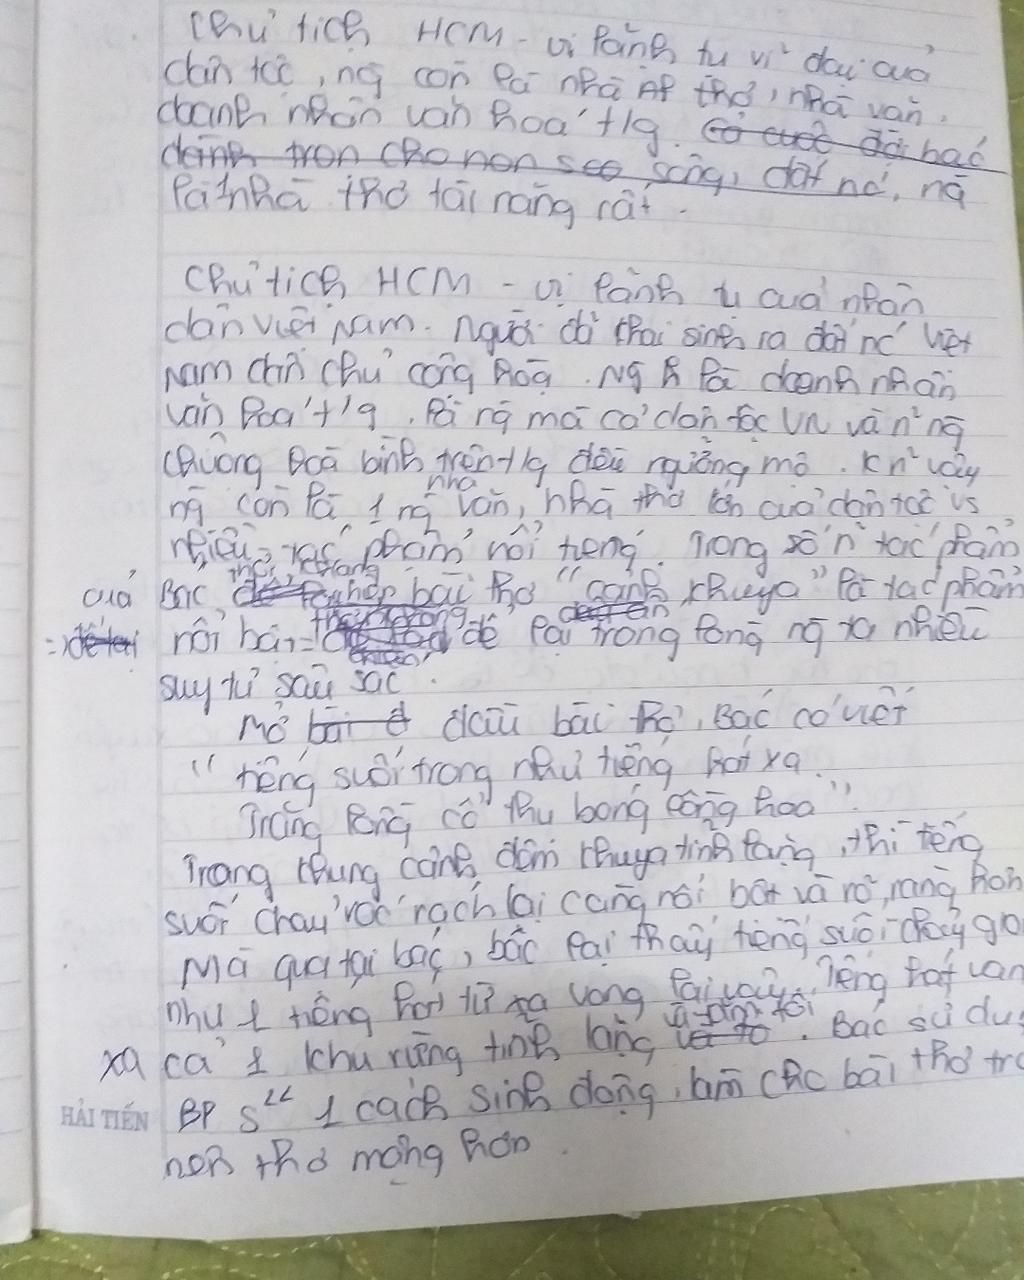 Chủ tịch HCM - vị lãnh tụ vĩ đại của
dân tộc, ng còn là nhà thơ, nhà văn,
doanh nhân văn hoá t/g. Có cuộc đời bác
dành trọn cho non sông, đất nc, ng
là nhà thơ tài năng rất
Chủ tịch HCM - vị lãnh tụ của nhân
dân Việt Nam. Người đã khai sinh ra đất nc Việt
Nam dân chủ cộng hòa. Ng là doanh nhân
văn hoá t/g. là ng mà cả dân tộc VN và n~ ng
chuộng hoà bình trên t/g đều ngưỡng mộ. K n~ vậy
ng còn là 1 nhà văn, nhà thơ lớn của dân tộc vs
nhiều tác phẩm nổi tiếng. Trong số n~ tác phẩm
của Bác thời kháng bài thơ "cảnh khuya" là tác phẩm
nổi bật để lại trong lòng ng ta nhiều
suy tư sâu sắc.
Mở đầu bài thơ, Bác có viết
" tiếng suối trong như tiếng hát xa
Trăng lồng cổ thụ bóng lồng hoa".
Trong khung cảnh đêm khuya tĩnh lặng, thì tiếng
suối chảy róc rách lại càng nổi bật và rõ ràng hơn
Mà qua tai bác, bác lại thấy tiếng suối chảy
như 1 tiếng hát từ xa vọng lại vậy. Tiếng hát van
xa cả 1 khu rừng tĩnh lặng và đêm tối. Bác sử dụ
BP S² 1 cách sinh động, làm cho bài thơ tr
nên thơ mộng hơn.
HẢI TIẾN